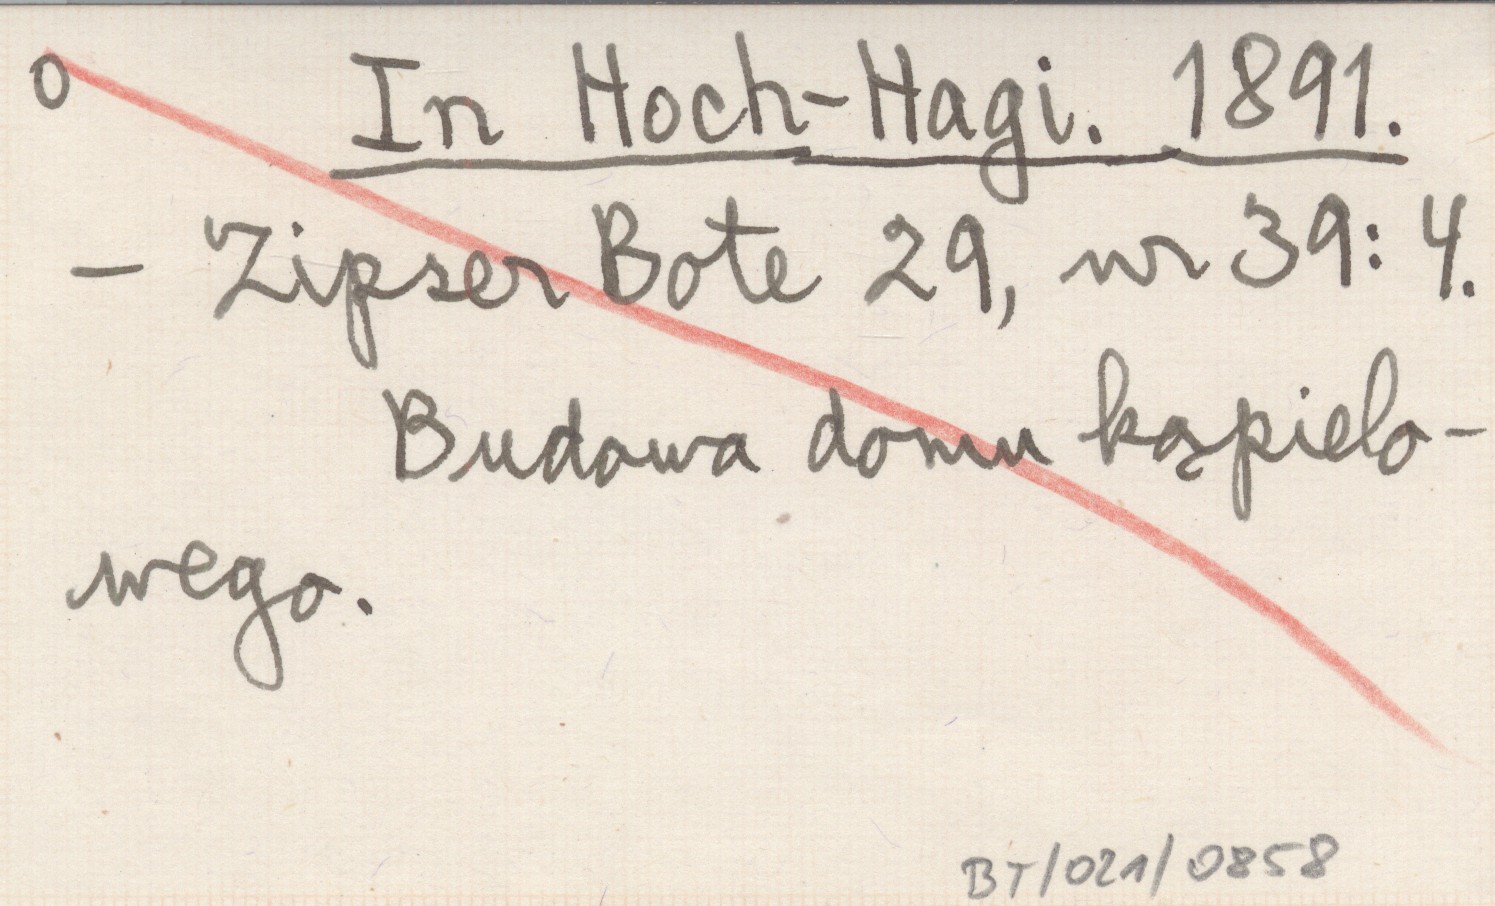 o In Hoch-Hagi. 1891.
- Zipser Bote 29, nr 39: 4.
Budowa domu kąpielo-
wego.
BT/021/0858